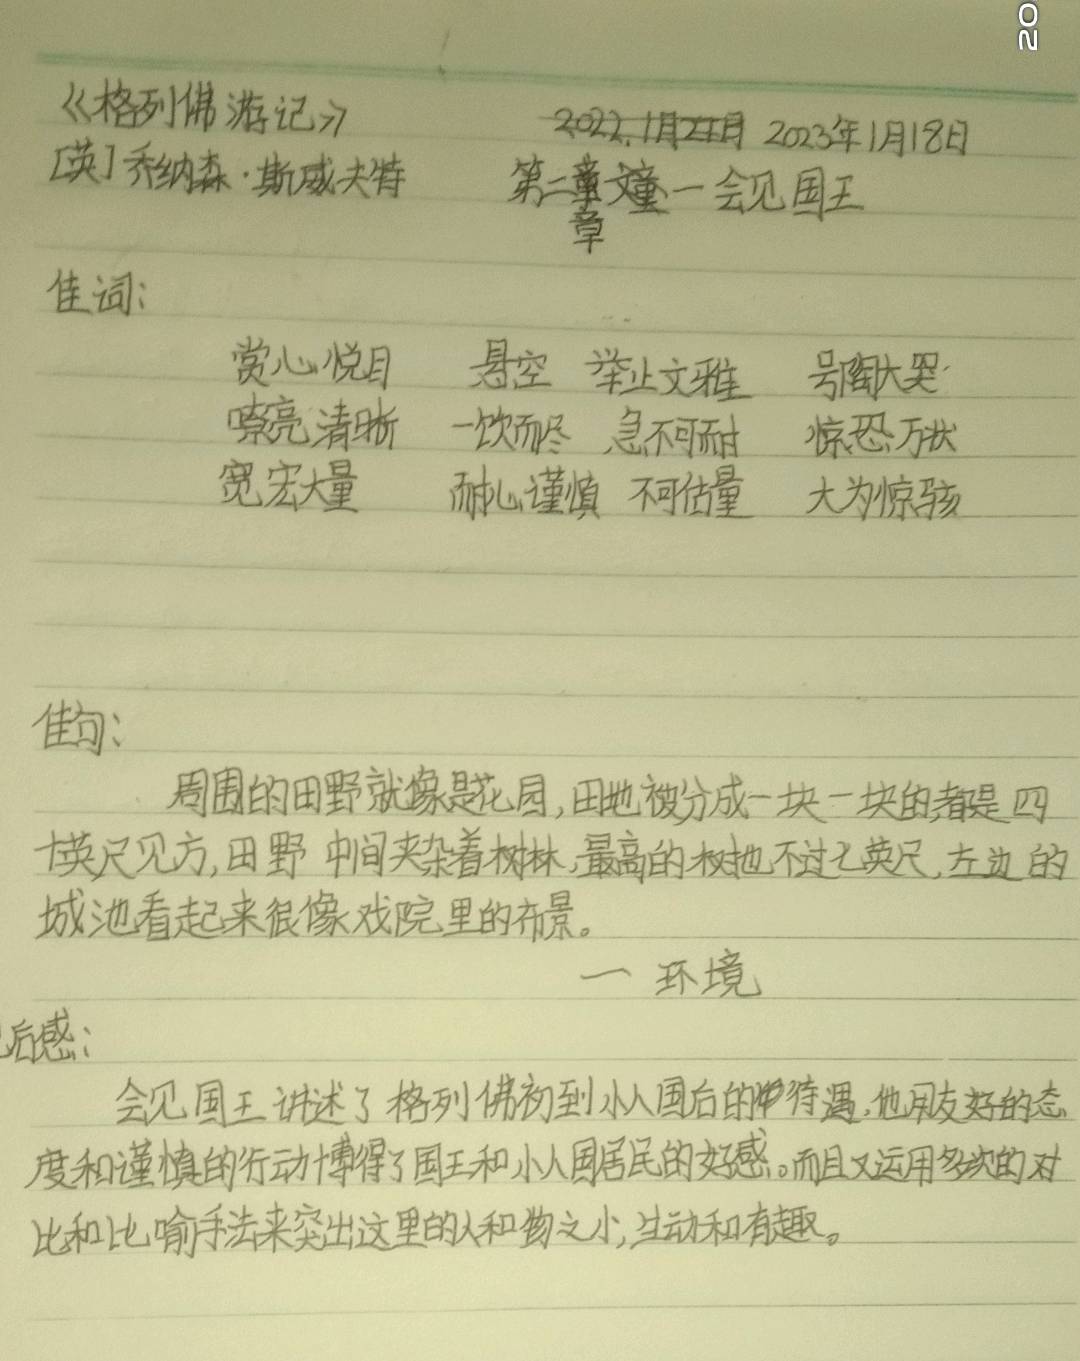 20
《格列佛游记》 2022.1月21月 2023年1月18日
[英]乔纳森·斯威夫特 第二章 一会见国王
章
佳词:
赏心悦目 悬空 举止文雅 号陶大哭
嘹亮清晰 一饮而尽 急不可耐 惊恐万状
宽宏大量 耐心谨慎 不可估量 大为惊骇
佳句:
周围的田野就像是花园,田地被分成一块一块的都是四
十英尺见方,田野中间夹杂着树林,最高的树也不过七英尺,左边的
城池看起来很像戏院里的布景。
一 环境
后感:
会见国王讲述了格列佛初到小人国后的待遇,他用友好的态
度和谨慎的行动博得了国王和小人国居民的好感。而且又运用多次的对
比和比喻手法来突出这里的人和物之小,生动和有趣。